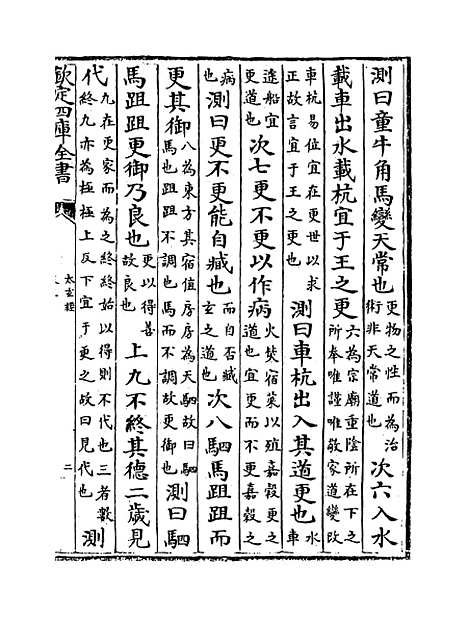 測曰童牛角馬變天常也更物之性而為治術非天常道也次六入水
載車出水載杭宜于王之更六為宗廟重陰所在下之所奉唯謹唯敬家道變改
車杭易位宜在更世以求正故言宜于王之更也測曰車杭出入其道更也水車
逵船宜更道也次七更不更以作病火焚宿菜以殖嘉穀更之道也宜更而不更嘉穀之
病也測曰更不更能自臧也而自否臧玄之道也次八駟馬跙跙而
更其御八為東方其宿值房房為天駟故曰駟馬也跙跙不調也馬而不調故更御也測曰駟
馬跙跙更御乃良也更以得善故良也上九不終其德二歲見
代九在更家而為之終終始以得則不代也三者數終九亦為極極上反下宜于更之故曰見代也測
欽定四庫全書
太玄經
二